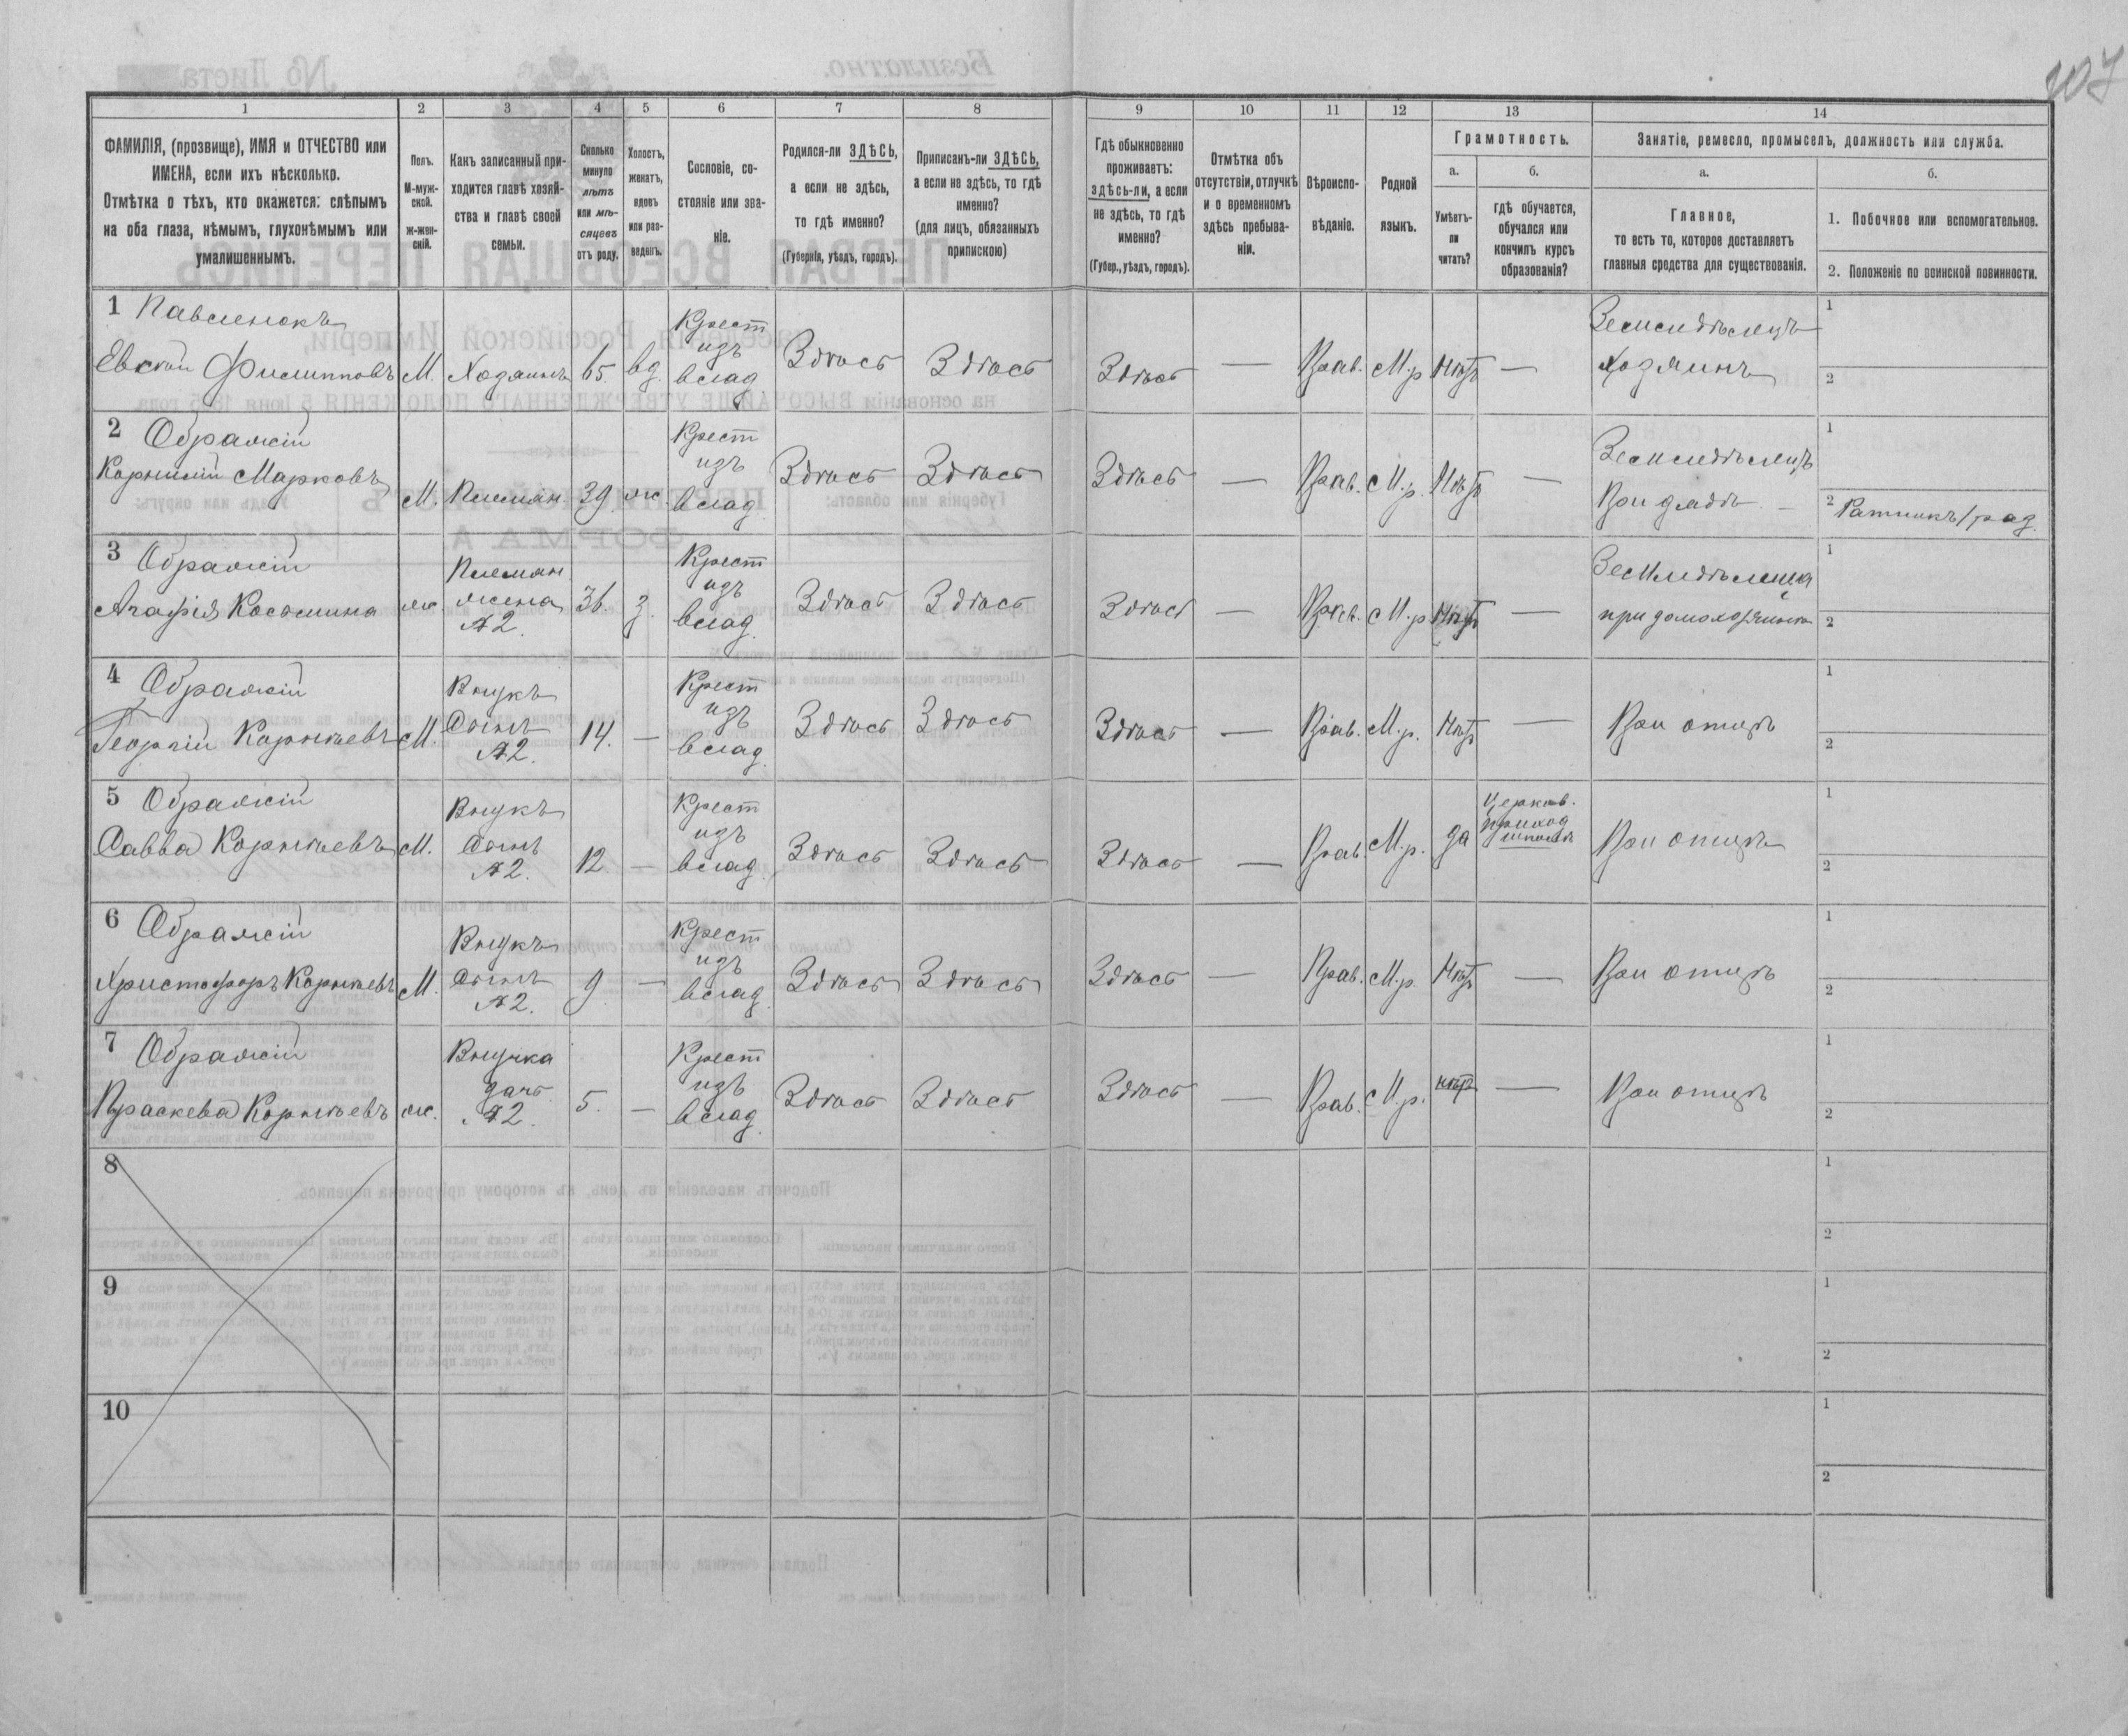 107
1 2 3 4 5 6 7 8 9 10 11 12 13 14
ФАМИЛІЯ, (прозвище), ИМЯ и ОТЧЕСТВО или
ИМЕНА, если ихъ нѣсколько.
Отмѣтка о тѣхъ, кто окажется: слѣпымъ
на оба глаза, нѣмымъ, глухонѣмымъ или
умалишеннымъ.
Полъ.
М-муж-
ской.
ж-жен-
скій.
Какъ записанный при-
ходится главѣ хозяй-
ства и главѣ своей
семьи.
Сколько
минуло
лѣтъ
или мѣ-
сяцевъ
отъ роду.
Холостъ,
женатъ,
вдовъ
или раз-
веденъ.
Сословіе, со-
стояніе или зва-
ніе.
Родился-ли ЗДѢСЬ,
а если не здѣсь,
то гдѣ именно?
(Губернія, уѣздъ, городъ).
Приписанъ-ли ЗДѢСЬ,
а если не здѣсь, то гдѣ
именно?
(для лицъ, обязанныхъ
припискою)
Гдѣ обыкновенно
проживаетъ:
здѣсь-ли, а если
не здѣсь, то гдѣ
именно?
(Губер., уѣздъ, городъ).
Отмѣтка объ
отсутствіи, отлучкѣ
и о временномъ
здѣсь пребыва-
ніи.
Вѣроиспо-
вѣданіе.
Родной
языкъ.
Грамотность.
а.
Умѣетъ-
ли
читать?
б.
гдѣ обучается,
обучался или
кончилъ курсъ
образованія?
Занятіе, ремесло, промыселъ, должность или служба.
а.
Главное,
то есть то, которое доставляетъ
главныя средства для существованія.
б.
1. Побочное или вспомогательное.
2. Положеніе по воинской повинности.
1 Павленокъ
Евсѣй Филипповъ М. Хозяинъ 65. вд. Крест изъ влад Здѣсь Здѣсь Здѣсь — Прав. М.р Нѣтъ — Земледѣлецъ
Хозяинъ
1
2
2 Ображій
Корнилій Марковъ М. Племян. 39. ж. Крест изъ влад. Здѣсь Здѣсь Здѣсь — Прав. М.р. Нѣтъ — Земледѣлецъ
При дядѣ —
1
2 Ратникъ 1 раз.
3 Ображій
Агафія Косьмина ж. Племян жена №2. 36. з. Крест изъ влад. Здѣсь Здѣсь Здѣсь — Прав. М.р Нѣтъ —
при домохозяинѣ
1
2
4 Ображій
Георгій Корнѣевъ М. Внукъ Сынъ №2. 14. — Крест изъ влад. Здѣсь Здѣсь Здѣсь — Прав. М.р. Нѣтъ — При отцѣ
1
2
5 Ображій
Савва Корнѣевъ М. Внукъ Сынъ №2. 12 — Крест изъ влад. Здѣсь Здѣсь Здѣсь — Прав. М.р. да Церков. приход школѣ При отцѣ
1
2
6 Ображій
Христофоръ Корнѣевъ М. Внукъ Сынъ №2. 9. — Крест изъ влад. Здѣсь Здѣсь Здѣсь — Прав. М.р. Нѣтъ — При отцѣ
1
2
7 Ображій
Праскева Корнѣевъ ж. Внучка дочь №2. 5. — Крест изъ влад. Здѣсь Здѣсь Здѣсь — Прав. М.р. нѣтъ — При отцѣ
1
2
8
1
2
9
1
2
10
1
2